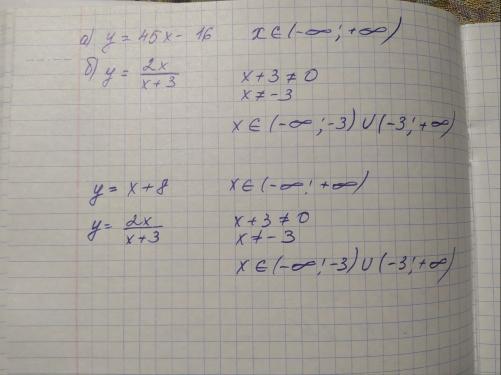 а) y = 45x - 16 x ∈ (-∞; +∞)
б) y = 2x/(x+3) x + 3 ≠ 0
x ≠ -3
x ∈ (-∞; -3) ∪ (-3; +∞)
y = x + 8 x ∈ (-∞; +∞)
y = 2x/(x+3) x + 3 ≠ 0
x ≠ -3
x ∈ (-∞; -3) ∪ (-3; +∞)